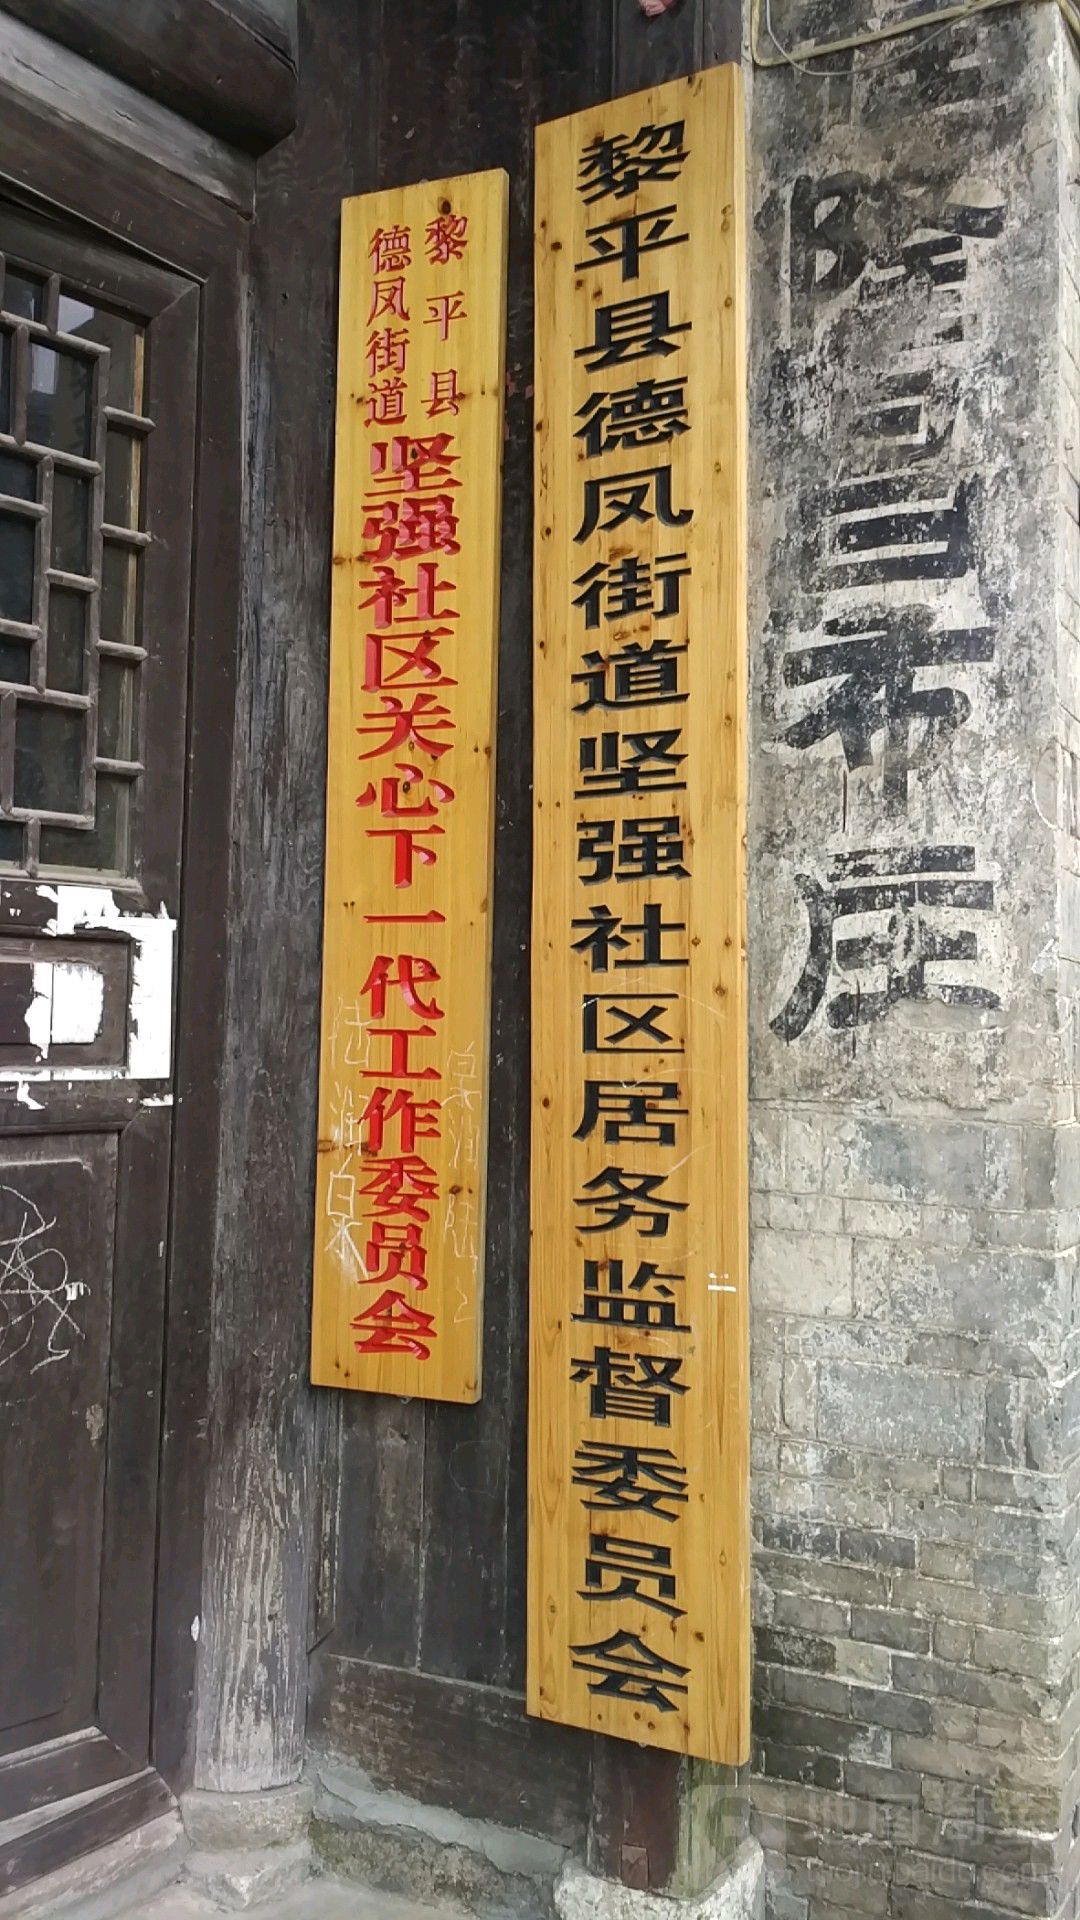 黎平县德凤街道坚强社区居务监督委员会
黎平县
德凤街道
坚强社区关心下一代工作委员会
布庄